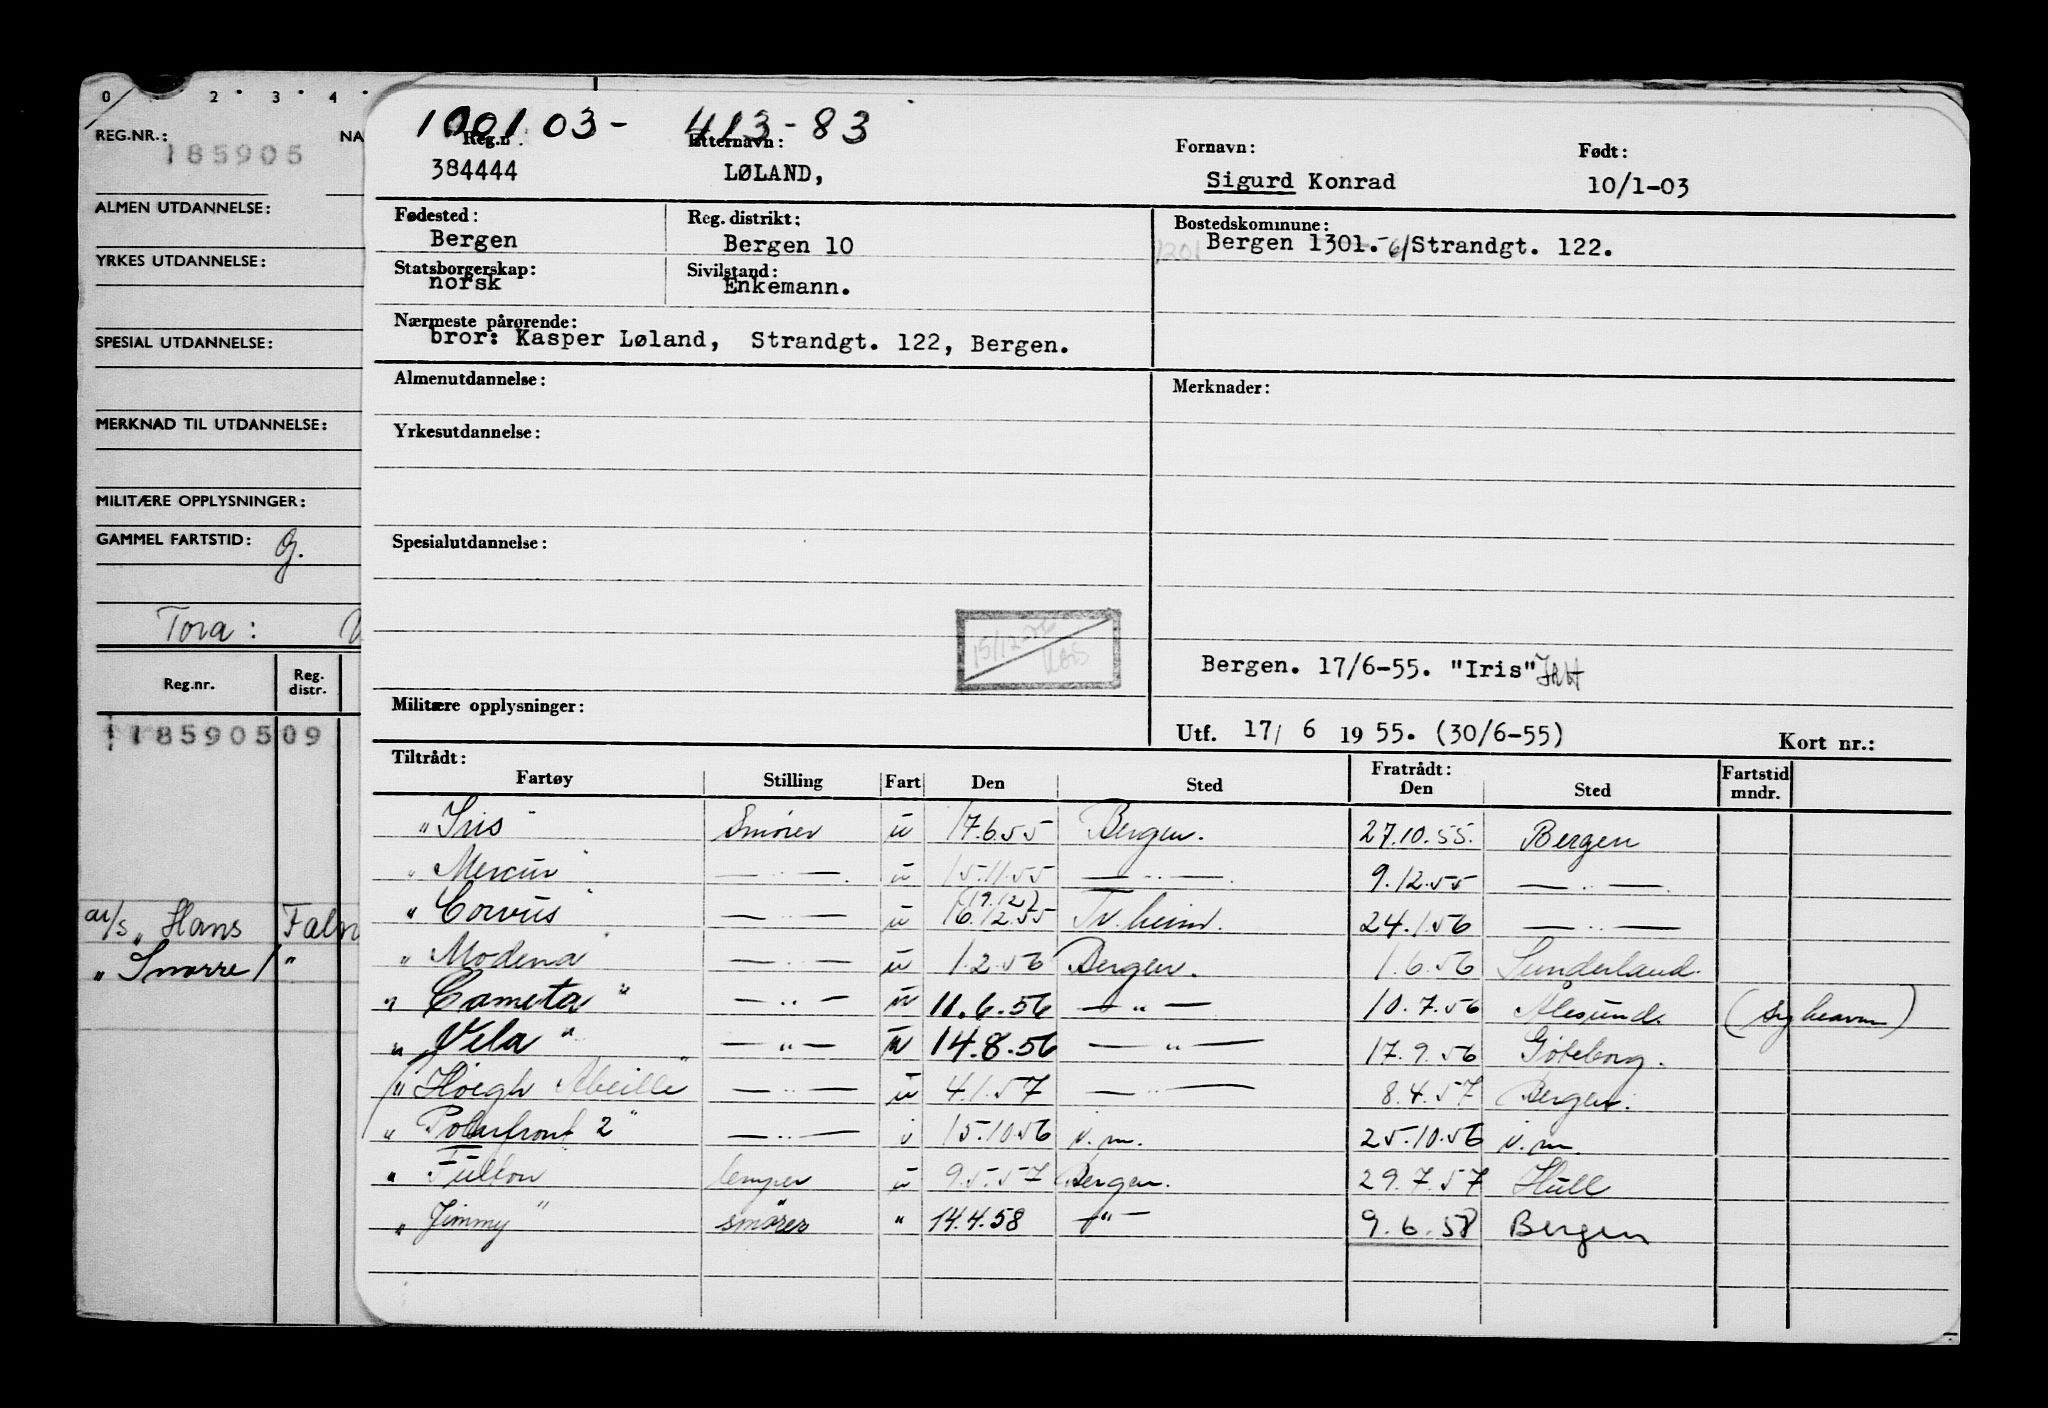 0 2 3 4
REG.NR.: NA
185905
ALMEN UTDANNELSE:
YRKES UTDANNELSE:
SPESIAL UTDANNELSE:
MERKNAD TIL UTDANNELSE:
MILITÆRE OPPLYSNINGER:
GAMMEL FARTSTID: G.
Tora:
Reg.nr. Reg. distr.
118590509
"Hans Faln
" Snorre / "
100103- 413-83
Reg.n. Etternavn: Fornavn: Født:
384444 LØLAND, Sigurd Konrad 10/1-03
Fødested: Reg. distrikt: Bostedskommune:
Bergen Bergen 10 1201 Bergen 1301.-6/Strandgt. 122.
Statsborgerskap: Sivilstand:
norsk Enkemann.
Nærmeste pårørende:
bror: Kasper Løland, Strandgt. 122, Bergen.
Almenutdannelse: Merknader:
Yrkesutdannelse:
Spesialutdannelse:
15/12-56
Bergen. 17/6-55. "Iris"
Militære opplysninger:
Utf. 17/ 6 1955. (30/6-55) Kort nr.:
Tiltrådt: Fratrådt: Fartstid
Fartøy Stilling Fart Den Sted Den Sted mndr.
"Iris" Smører u 17.6.55 Bergen. 27.10.55. Bergen
"Mercur" — " —. u 15.11.55 — " —. 9.12.55 — " —.
"Corvus" — " — u (19.12) 16.12.55 Tr.heim. 24.1.56 — " —
"Modena" — " — u 1.2.56 Bergen. 1.6.56 Sunderland.
"Cometa" — " — u 11.6.56 — " — 10.7.56 Ålesund.
"Vela" — " — u 14.8.56 — " — 17.9.56 Göteborg.
"Höegh Abeille" — " — u 4.1.57 — " — 8.4.57 Bergen.
"Polarfront 2" — " — i 15.10.56 i.m. 25.10.56 i.m.
"Fulton lemper u 9.5.57 Bergen. 29.7.57 Hull
"Jimmy" smører " 14.4.58 — " — 9.6.58 Bergen